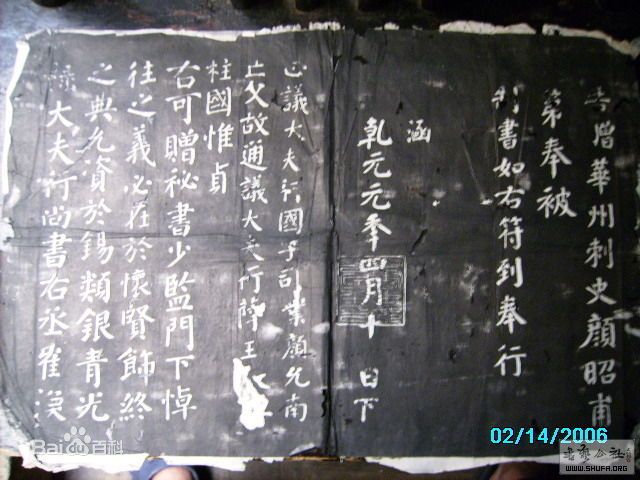 贈華州刺史顔昭甫
第奉被
書如右符到奉行
涵
乾元元年四月十 日下
正議大夫行國子司業顔允南
亡父故通議大夫行薛王友
柱國惟貞
右可贈祕書少監門下悼
往之義必在於懷賢飾終
之典允資於錫類銀青光
祿大夫行尚書右丞崔漪
Bai百科
02/14/2006
WWW.SHUFA.ORG